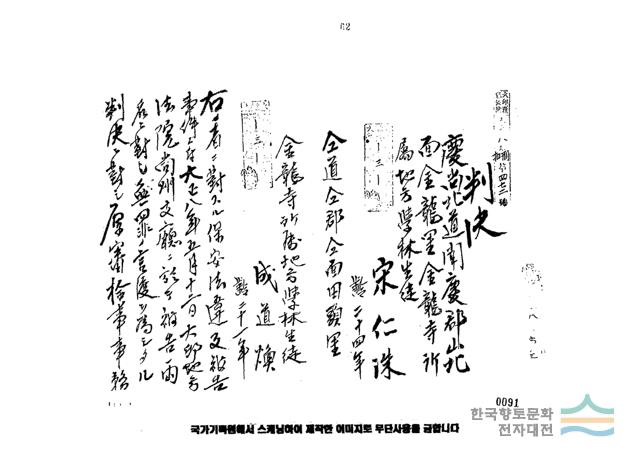 62
判決
慶尚北道聞慶郡山北
面金龍里金龍寺所
属地方学林生徒
宋仁洙
二十四年
仝道仝郡仝面田頭里
金龍寺所属地方学林生徒
成道煥
二十一年
右ノ者ニ対スル保安法違反被告
事件ニ付大正八年五月十二日大邱地方
法院尚州支庁ニ於テ被告両
名ニ対シ無罪ノ言渡ヲ為シタル
判決ニ対シ原審検事事務
0091
국가기록원에서 스캐닝하여 제작한 이미지로 무단사용을 금합니다
한국향토문화
전자대전